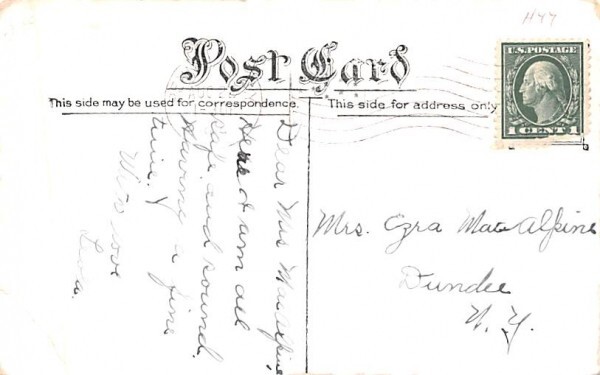 H44
Post Card
U.S. POSTAGE
1 CENT 1
This side may be used for correspondence.
This side for address only
Dear Mrs MacAlpine,
Here I am all
safe and sound.
Having a fine
time.
With love
Mrs. Ezra MacAlpine
Dundee
N. Y.